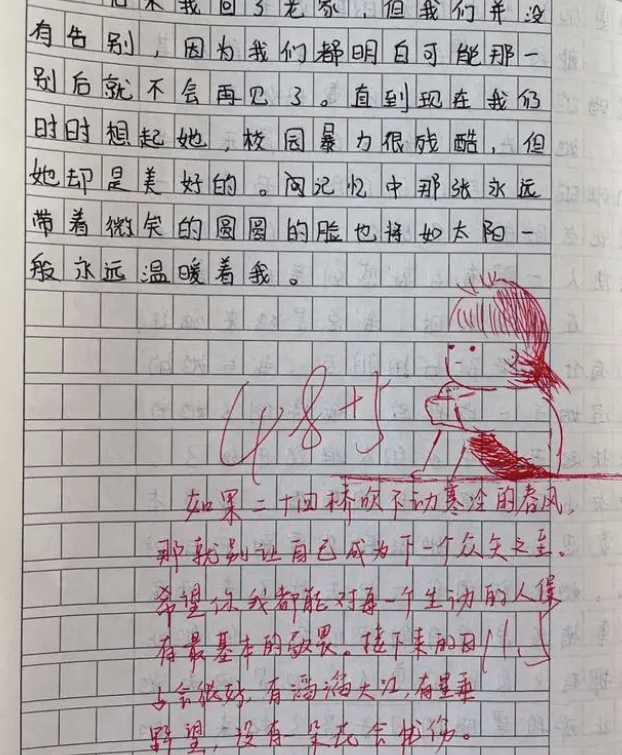 我回了老家，但我们并没
有告别，因为我们都明白可能那一
别后就不会再见了。直到现在我仍
时时想起她，校园暴力很残酷，但
她却是美好的。而记忆中那张永远
带着微笑的圆圆的脸也将如太阳一
般永远温暖着我。
48+5
如果二十四桥吹不动寒冷的春风，
那就别让自己成为下一个众矢之至。
希望你我都能对每一个生动的人保
有最基本的敬畏。接下来的日
子会很好，有滔滔大江，有星垂
野望，没有一朵花会忧伤。
11.5